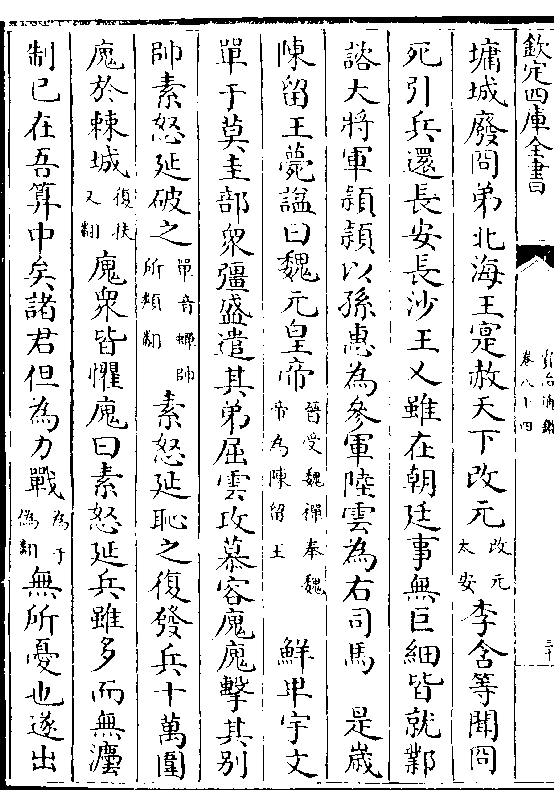 欽定四庫全書
資治通鑑
卷八十四
三十
墉城廢冏弟北海王寔赦天下改元改元太安李含等聞冏
死引兵還長安長沙王乂雖在朝廷事無巨細皆就鄴
諮大將軍穎穎以孫惠為參軍陸雲為右司馬 是歲
陳留王薨諡曰魏元皇帝晉受魏禪奉魏帝為陳留王 鮮卑宇文
單于莫圭部衆彊盛遣其弟屈雲攻慕容廆廆擊其别
帥素怒延破之單音蟬帥所類翻素怒延恥之復發兵十萬圍
廆於棘城復扶又翻廆衆皆懼廆曰素怒延兵雖多而無灋
制已在吾算中矣諸君但為力戰為于偽翻無所憂也遂出